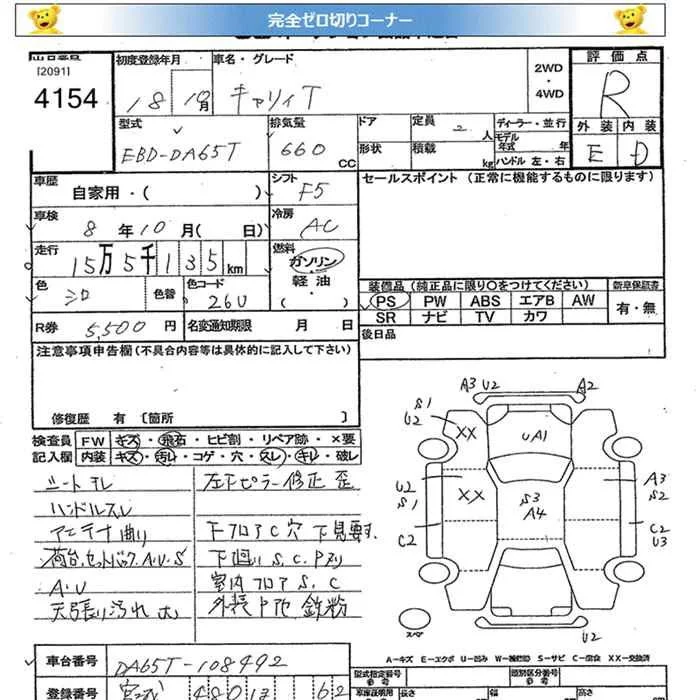 完全ゼロ切りコーナー
[2091]
4154
初度登録年月
18 10月
車名・グレード
キャリィT
2WD
・
4WD
評価点
R
外装 内装
E D
型式
EBD-DA65T
排気量
660 CC
ドア
形状
定員 2 人
積載 kg
ディーラー・並行
モデル
年式 年
ハンドル 左・右
車歴
自家用・( )
シフト
F5
セールスポイント(正常に機能するものに限ります)
車検
8 年 10 月( 日)
冷房
AC
走行
15万5千135km
燃料
ガソリン・
軽油・
( )
色
シロ
色替
色コード
26U
装備品(純正品に限り○をつけてください)
PS PW ABS エアB AW
SR ナビ TV カワ
新車保証書
有・無
R券 5,500 円
名変通知期限 月 日
後日品
注意事項申告欄(不具合内容等は具体的に記入して下さい)
修復歴 有 [箇所 ]
検査員
記入欄
FW キズ・飛石・ヒビ割・リペア跡・×要
内装 キズ・汚レ・コゲ・穴・スレ・キレ・破レ
シートヤレ
ハンドルスレ
アンテナ曲り
荷台、セットバックA.U.S
A.U
天張り汚れ 大
左下ピラー修正 歪
下フロアC穴 下見要す.
下廻りS.C.P
室内フロアS.C
外装 鉄粉
A3 U2
A2
S1
U2
XX
UA1
U2
S1
XX
S3
A4
A3
S2
C2
C2
U3
U2
スペア
A-キズ E-エクボ U-凹ミ W-補修跡 S-サビ C-腐食 XX-交換済
車台番号
DA65T-108492
型式指定番号
類別区分番号
登録番号
宮城 480 62
長さ
幅
高さ